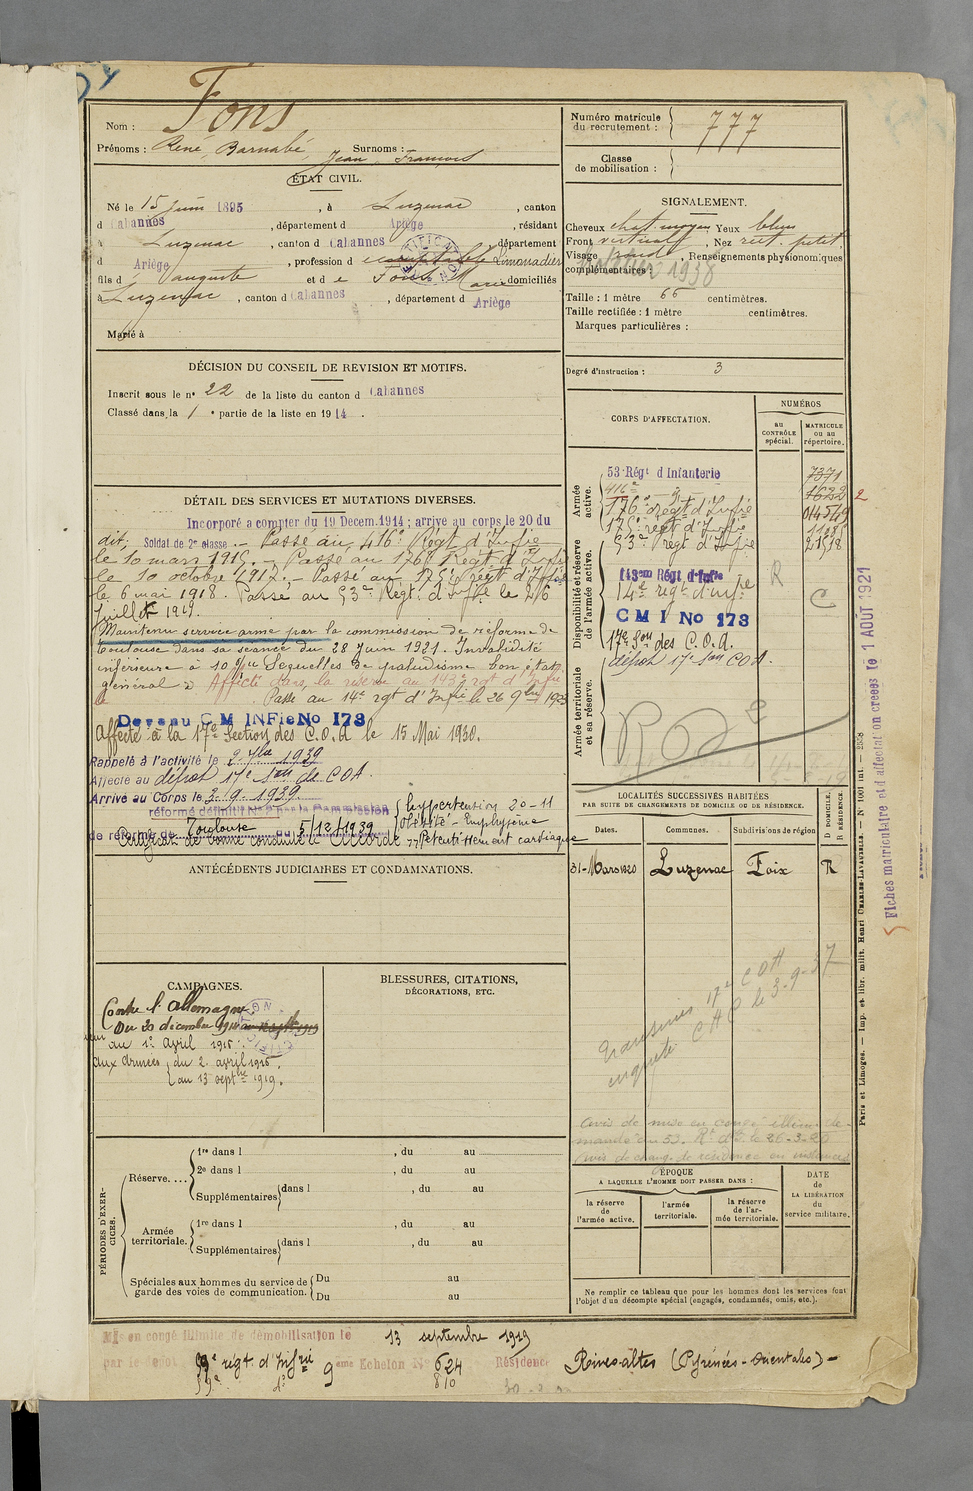 Fons
Nom :
Prénoms : René, Barnabé, Surnoms :
Jean, François
ÉTAT CIVIL.
Né le 15 juin 1895, à Luzenac, canton
d Cabannes, département d Ariège, résidant
à Luzenac, canton d Cabannes, département
d Ariège, profession d comptable Limonadier
fils d Auguste et d e Fons Marie domiciliés
à Luzenac, canton d Cabannes, département d Ariège
Marié à
DÉCISION DU CONSEIL DE REVISION ET MOTIFS.
Inscrit sous le n° 22 de la liste du canton d Cabannes
Classé dans la 1e partie de la liste en 1914.
DÉTAIL DES SERVICES ET MUTATIONS DIVERSES.
Incorporé a compter du 19 Decem. 1914 ; arrive au corps le 20 du
dit; Soldat de 2e classe. - Passé au 416e Régt d'Infie
le 10 mars 1915. - Passé au 176e Régt d'Infie
le 10 octobre 1917. - Passé au 175e régt d'Infie
le 6 mai 1918. Passé au 53e Régt d'Infie le 26
juillet 1919.
Maintenu service armé par la commission de réforme de
Toulouse dans sa séance du 28 Juin 1921. Invalidité
inférieure à 10 % Séquelles de paludisme bon état
général. Affecté dans la réserve au 143e rgt d'Infie
le Passé au 14e rgt d'Infie le 26 9bre 1923
Devenu C M INFie No 173
Affecté à la 17e Section des C.O.A le 15 Mai 1930.
Rappelé à l'activité le 2 7bre 1939
Affecté au dépôt 17e Son de COA.
Arrivé au Corps le 3.9.1939
réformé définitif N° 2 par la Commission
de réforme de Toulouse du 5/12/1939
hypertention 20-11
Obésité - Emphysème
Retentissement cardiaque
Certificat de bonne conduite Accordé
ANTÉCÉDENTS JUDICIAIRES ET CONDAMNATIONS.
CAMPAGNES.
Contre l'Allemagne
Du 20 décembre 1914
au 1er avril 1915.
aux Armées du 2 avril 1915.
au 13 septbre 1919.
BLESSURES, CITATIONS,
DÉCORATIONS, ETC.
PÉRIODES D'EXERCICES.
Réserve....
1re dans l , du au
2e dans l , du au
Supplémentaires dans l , du au
Armée territoriale.
1re dans l , du au
Supplémentaires dans l , du au
Spéciales aux hommes du service de garde des voies de communication.
Du au
Du au
Mis en congé illimité de démobilisation le 13 septembre 1919
par le dépôt régt d'Infie 9eme Echelon N° 624 Résidence Rivesaltes (Pyrénées-Orientales) -
810
Numéro matricule
du recrutement : 777
Classe
de mobilisation :
SIGNALEMENT.
Cheveux chat. moyen Yeux bleus
Front vertical, Nez rect. petit
Visage rond, Renseignements physionomiques
complémentaires :
1938
Taille : 1 mètre 66 centimètres.
Taille rectifiée : 1 mètre centimètres.
Marques particulières :
Degré d'instruction : 3
CORPS D'AFFECTATION.
NUMÉROS
au CONTRÔLE spécial.
MATRICULE ou au répertoire.
Armée active.
53 Régt d Infanterie 7371
416e 1632
176e régt d'Infie 014549
175e régt d'Infie
53e Régt d'Infie
Disponibilité et réserve de l'armée active.
143em Régt d'Infie R
14e régt d'infie C
C M I No 173
17e Son des C.O.A.
dépôt 17e Son COA.
Armée territoriale et sa réserve.
LOCALITÉS SUCCESSIVES HABITÉES
PAR SUITE DE CHANGEMENTS DE DOMICILE OU DE RÉSIDENCE.
Dates. Communes. Subdivisions de région
D DOMICILE,
R RÉSIDENCE.
31-Mars 1920 Luzenac Foix R
17e COA
le 3-9-37
Avis de mise en congé illim. de
ÉPOQUE
A LAQUELLE L'HOMME DOIT PASSER DANS :
la réserve de l'armée active.
l'armée territoriale.
la réserve de l'armée territoriale.
DATE de LA LIBÉRATION du service militaire.
Ne remplir ce tableau que pour les hommes dont les services font
l'objet d'un décompte spécial (engagés, condamnés, omis, etc.).
Paris et Limoges. — Imp. et libr. milit. Henri CHARLES-LAVAUZELLE. — N° 1001 int. —
Fiches matriculaire et d affectation creees le 1 AOÛT 1921